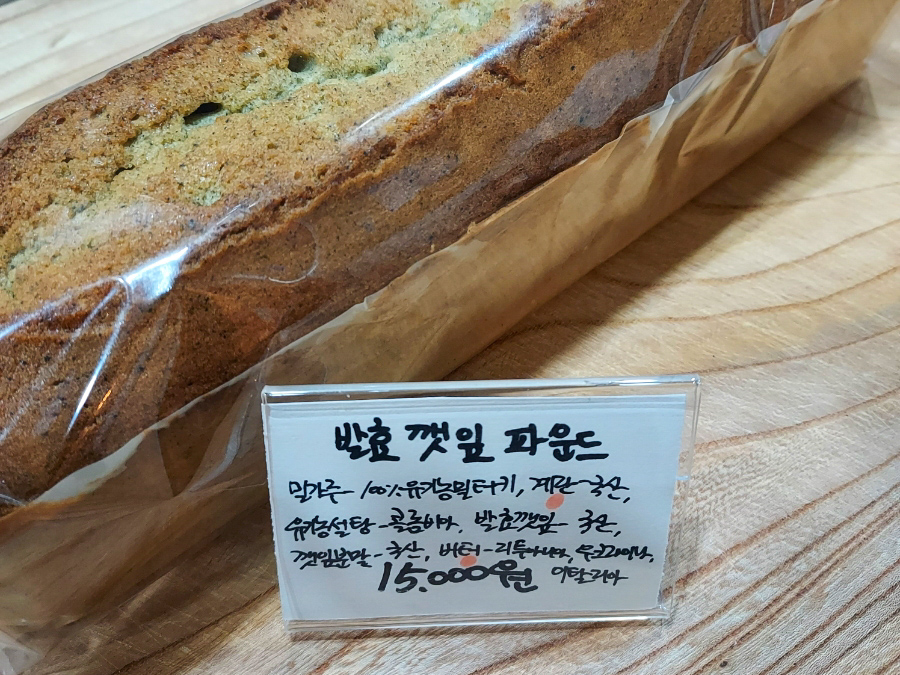 발효 깻잎 파운드
밀가루- 100%유기농밀터키, 계란-국산,
유기농설탕-콜롬비아, 발효깻잎- 국산,
깻잎분말-국산, 버터-리투아니아, 우크라이나,
15.000원 이탈리아